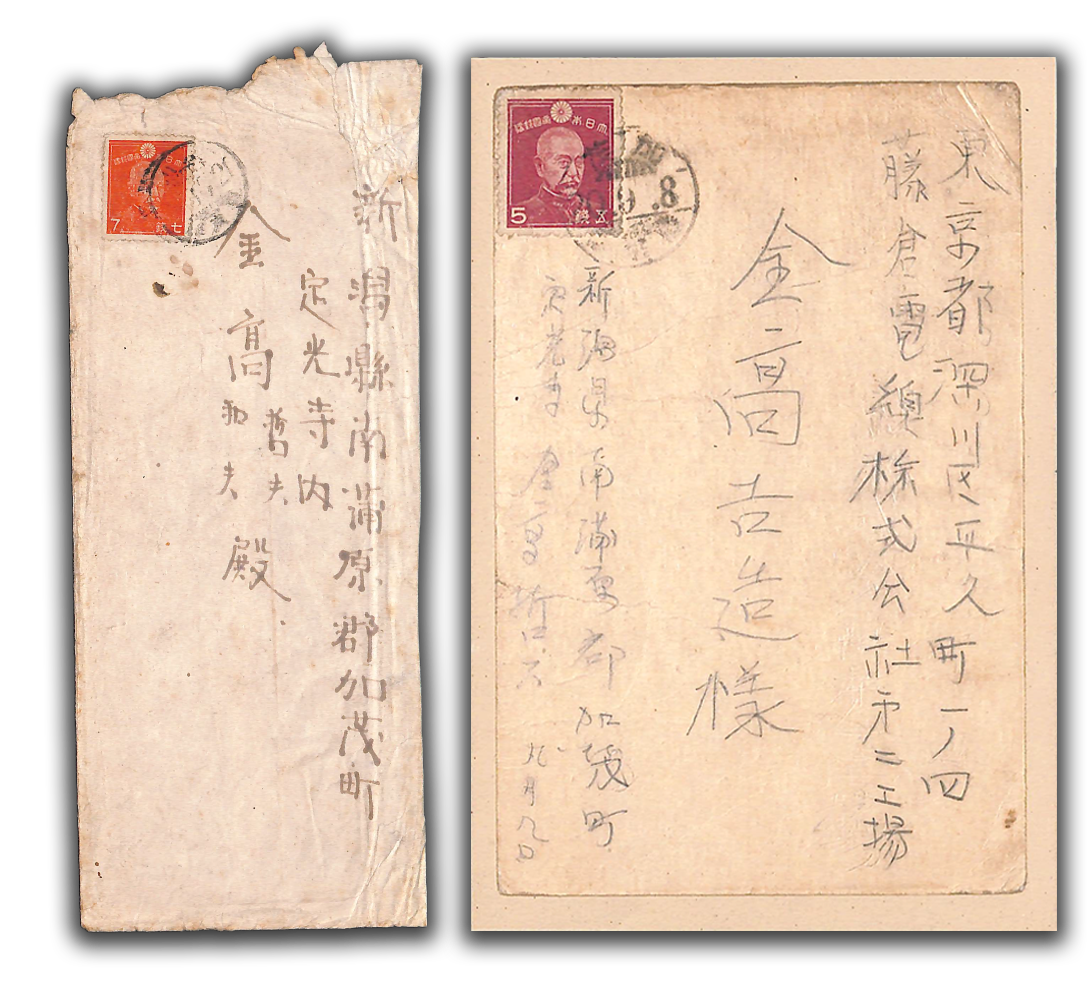 新潟縣南蒲原郡加茂町
定光寺内
金高
哲夫
和夫
殿
大日本帝國郵便
7
七銭
東京都深川区平久町一ノ四
藤倉電線株式会社第二工場
金高吉造様
新潟県南蒲原郡加茂町
定光寺 金高哲夫
九月九日
大日本帝國郵便
5
五銭
9.8